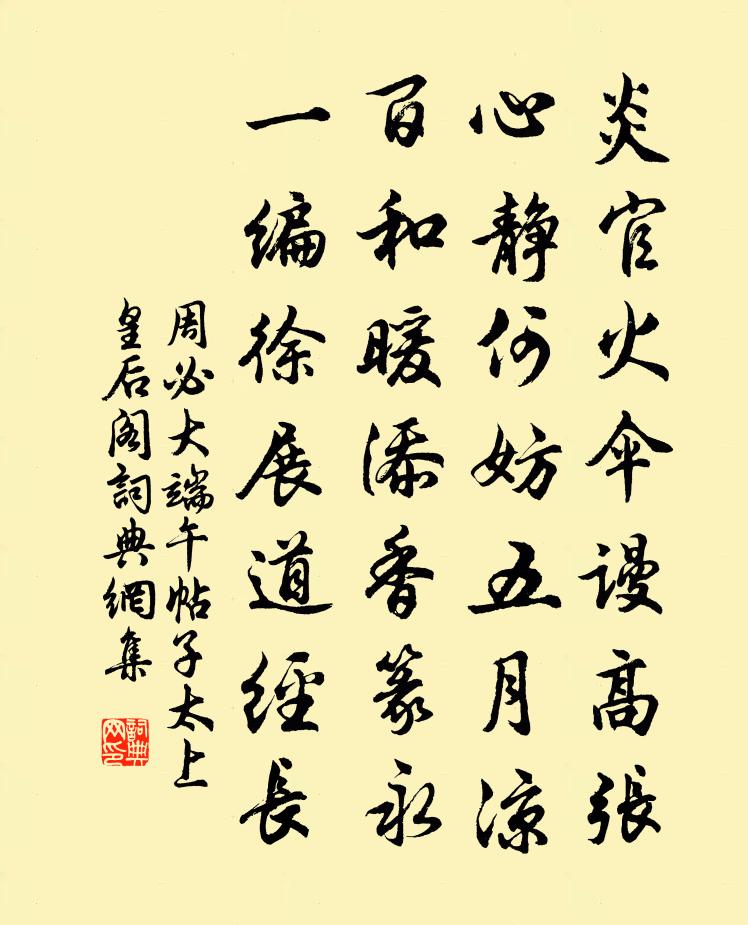 炎官火伞謾高張
心静何妨五月涼
百和暖添香篆永
一编徐展道經長
周必大端午帖子太上
皇后阁詞典網集
詞典网印